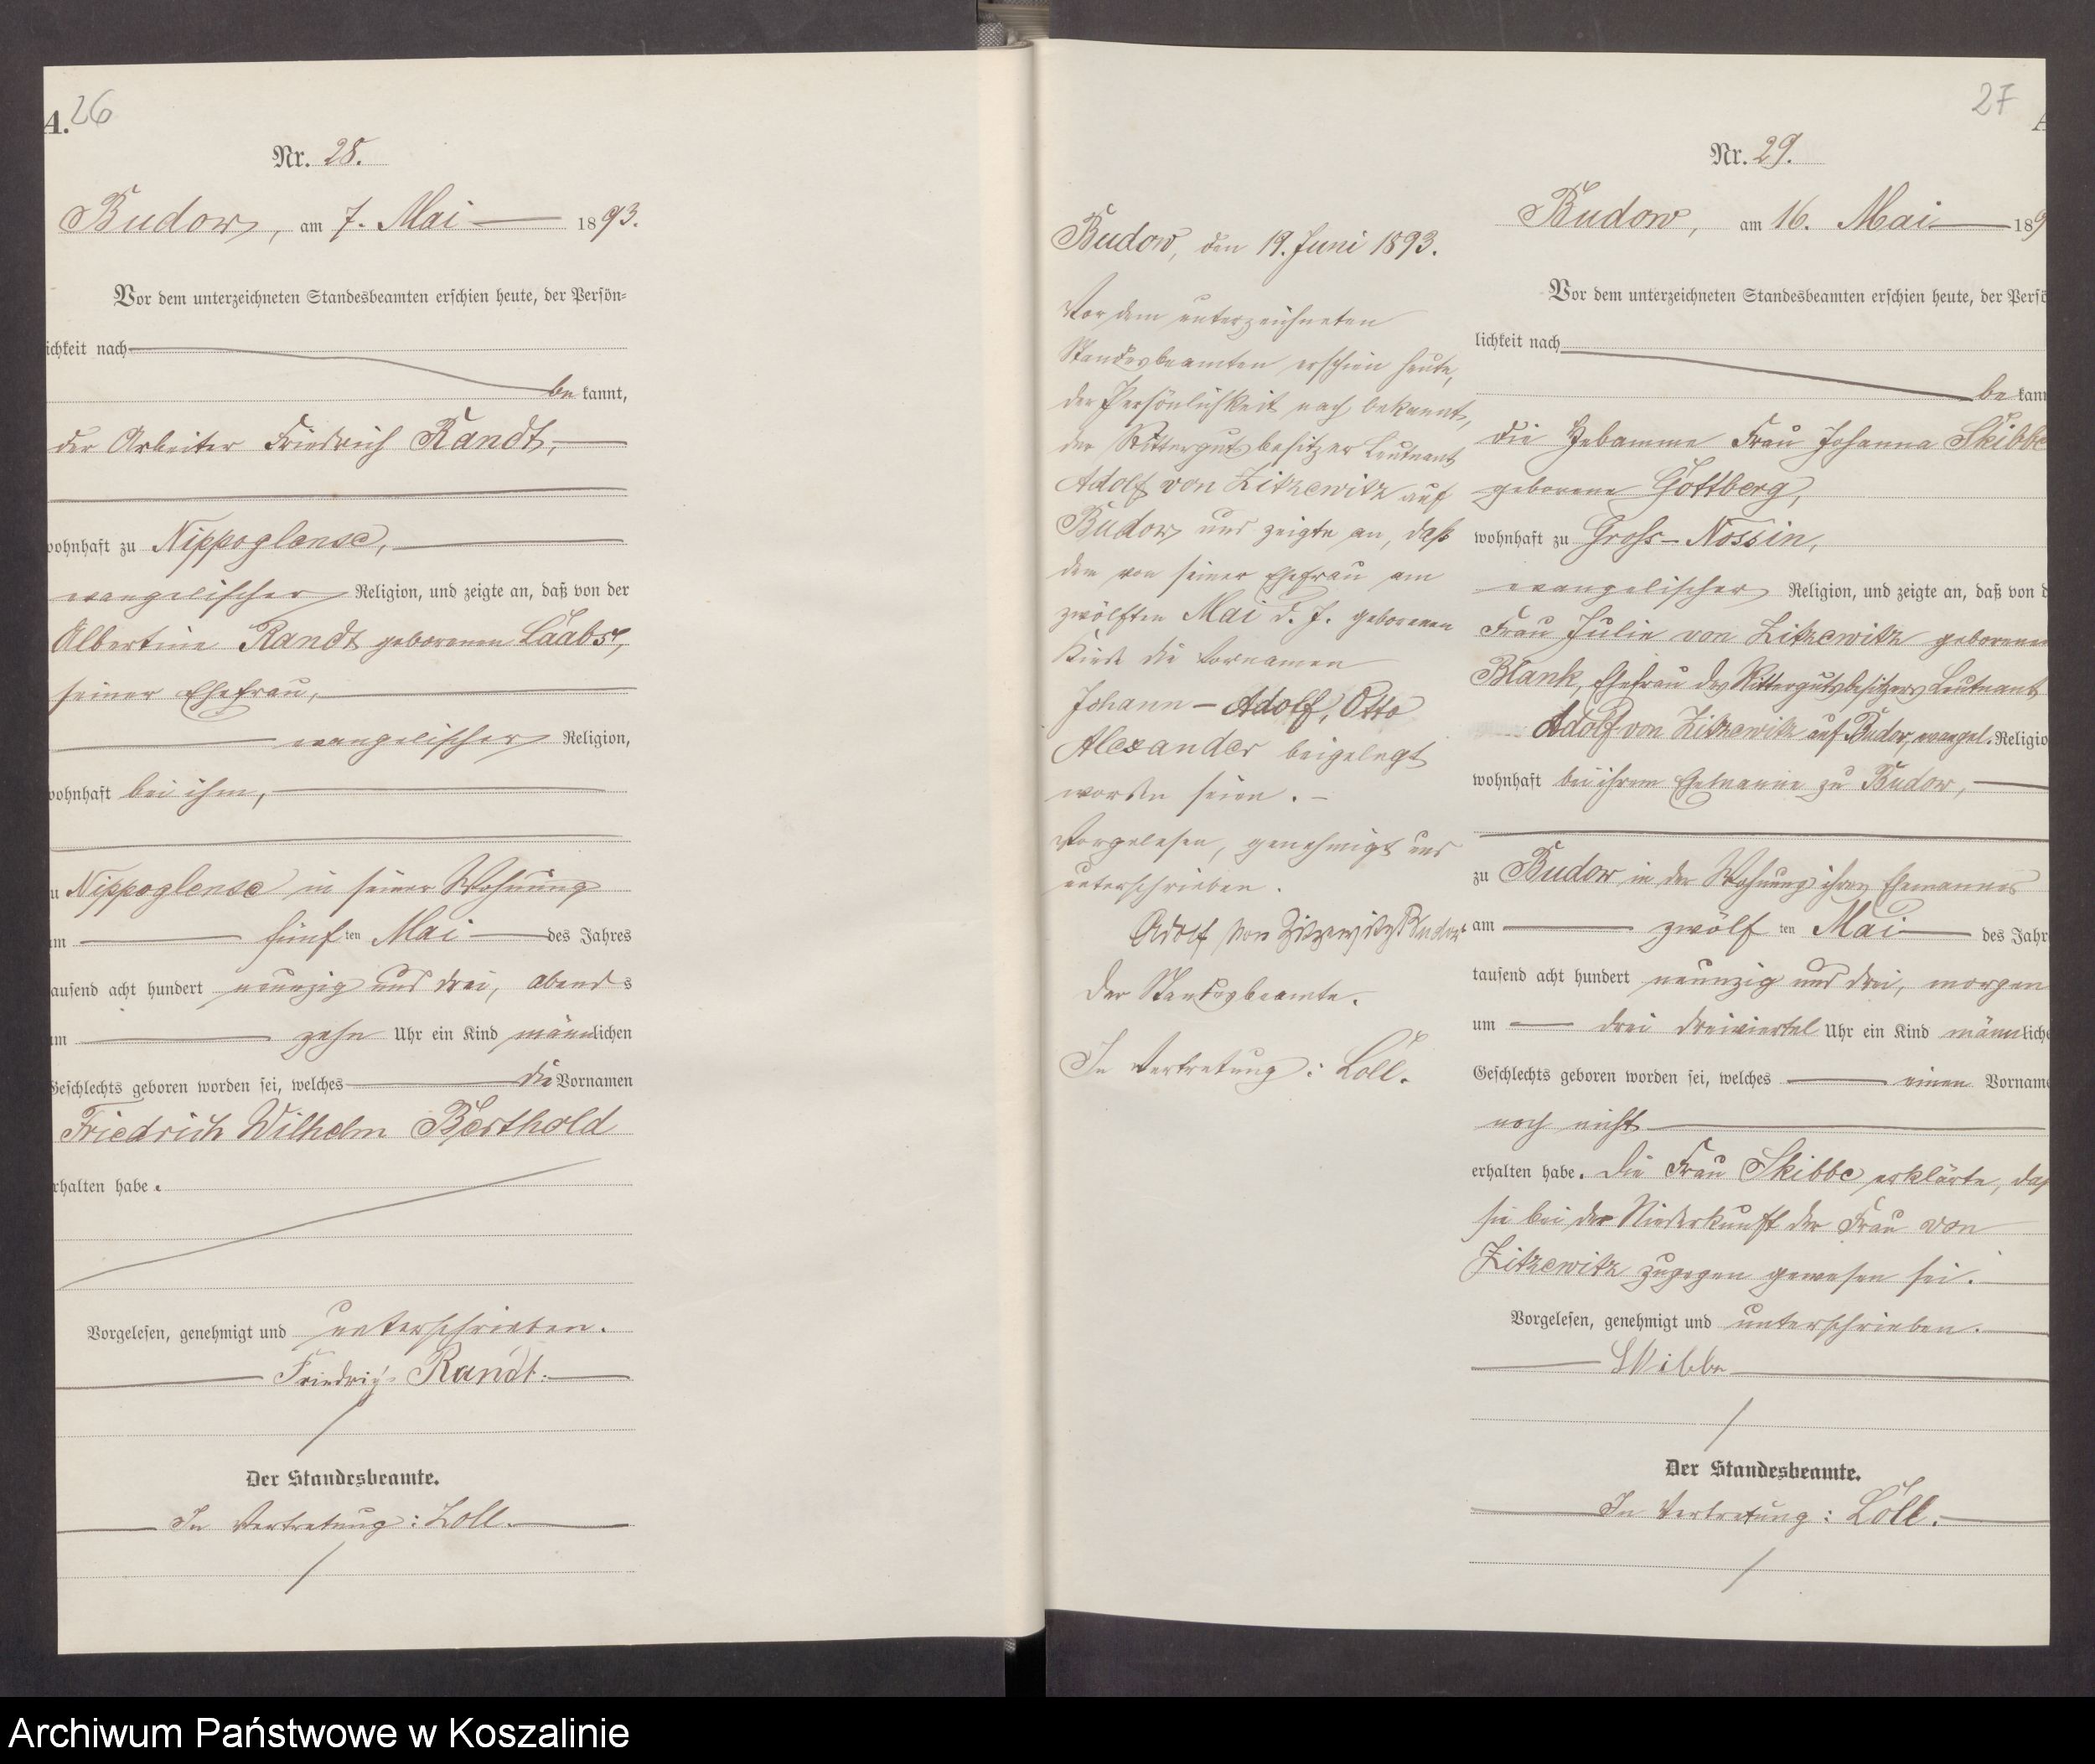 A. 26
Nr. 28.
Budow, am 7. Mai 1893.
Vor dem unterzeichneten Standesbeamten erschien heute, der Persön=
lichkeit nach
be kannt,
der Arbeiter Friedrich Randt,
wohnhaft zu Nippoglense,
evangelischer Religion, und zeigte an, daß von der
Albertine Randt geborenen Laabs,
seiner Ehefrau,
evangelischer Religion,
wohnhaft bei ihm,
zu Nippoglense in seiner Wohnung
am fünf ten Mai des Jahres
tausend acht hundert neunzig und drei, abends
um zehn Uhr ein Kind männlichen
Geschlechts geboren worden sei, welches die Vornamen
Friedrich Wilhelm Berthold
erhalten habe.
Vorgelesen, genehmigt und unterschrieben.
Friedrich Randt.
Der Standesbeamte.
In Vertretung: Loll.
27
Budow, den 19. Juni 1893.
Vor dem unterzeichneten
Standesbeamten erschien heute,
der Persönlichkeit nach bekannt,
der Rittergutsbesitzer Leutnant
Adolf von Zitzewitz auf
Budow und zeigte an, daß
dem von seiner Ehefrau am
zwölften Mai d. J. geborenen
Kinde die Vornamen
Johann-Adolf, Otto
Alexander beigelegt
worden seien. -
Vorgelesen, genehmigt und
unterschrieben.
Adolf von Zitzewitz Budow
Der Standesbeamte.
In Vertretung: Loll.
Nr. 29.
Budow, am 16. Mai 189
Vor dem unterzeichneten Standesbeamten erschien heute, der Persö
lichkeit nach
be kann
die Hebamme Frau Johanna Skibbe
geborene Gottberg,
wohnhaft zu Gross-Nossin,
evangelischer Religion, und zeigte an, daß von d
Frau Julie von Zitzewitz geborenen
Blank, Ehefrau des Rittergutsbesitzers Leutnant
Adolf von Zitzewitz auf Budow, evangel. Religio
wohnhaft bei ihrem Ehemanne zu Budow,
zu Budow in der Wohnung ihres Ehemannes
am zwölf ten Mai des Jahr
tausend acht hundert neunzig und drei, morgen
um drei dreiviertel Uhr ein Kind männliche
Geschlechts geboren worden sei, welches einen Vorname
noch nicht
erhalten habe. Die Frau Skibbe erklärte, daß
sie bei der Niederkunft der Frau von
Zitzewitz zugegen gewesen sei.
Vorgelesen, genehmigt und unterschrieben.
Skibbe
Der Standesbeamte.
In Vertretung: Loll.
Archiwum Państwowe w Koszalinie